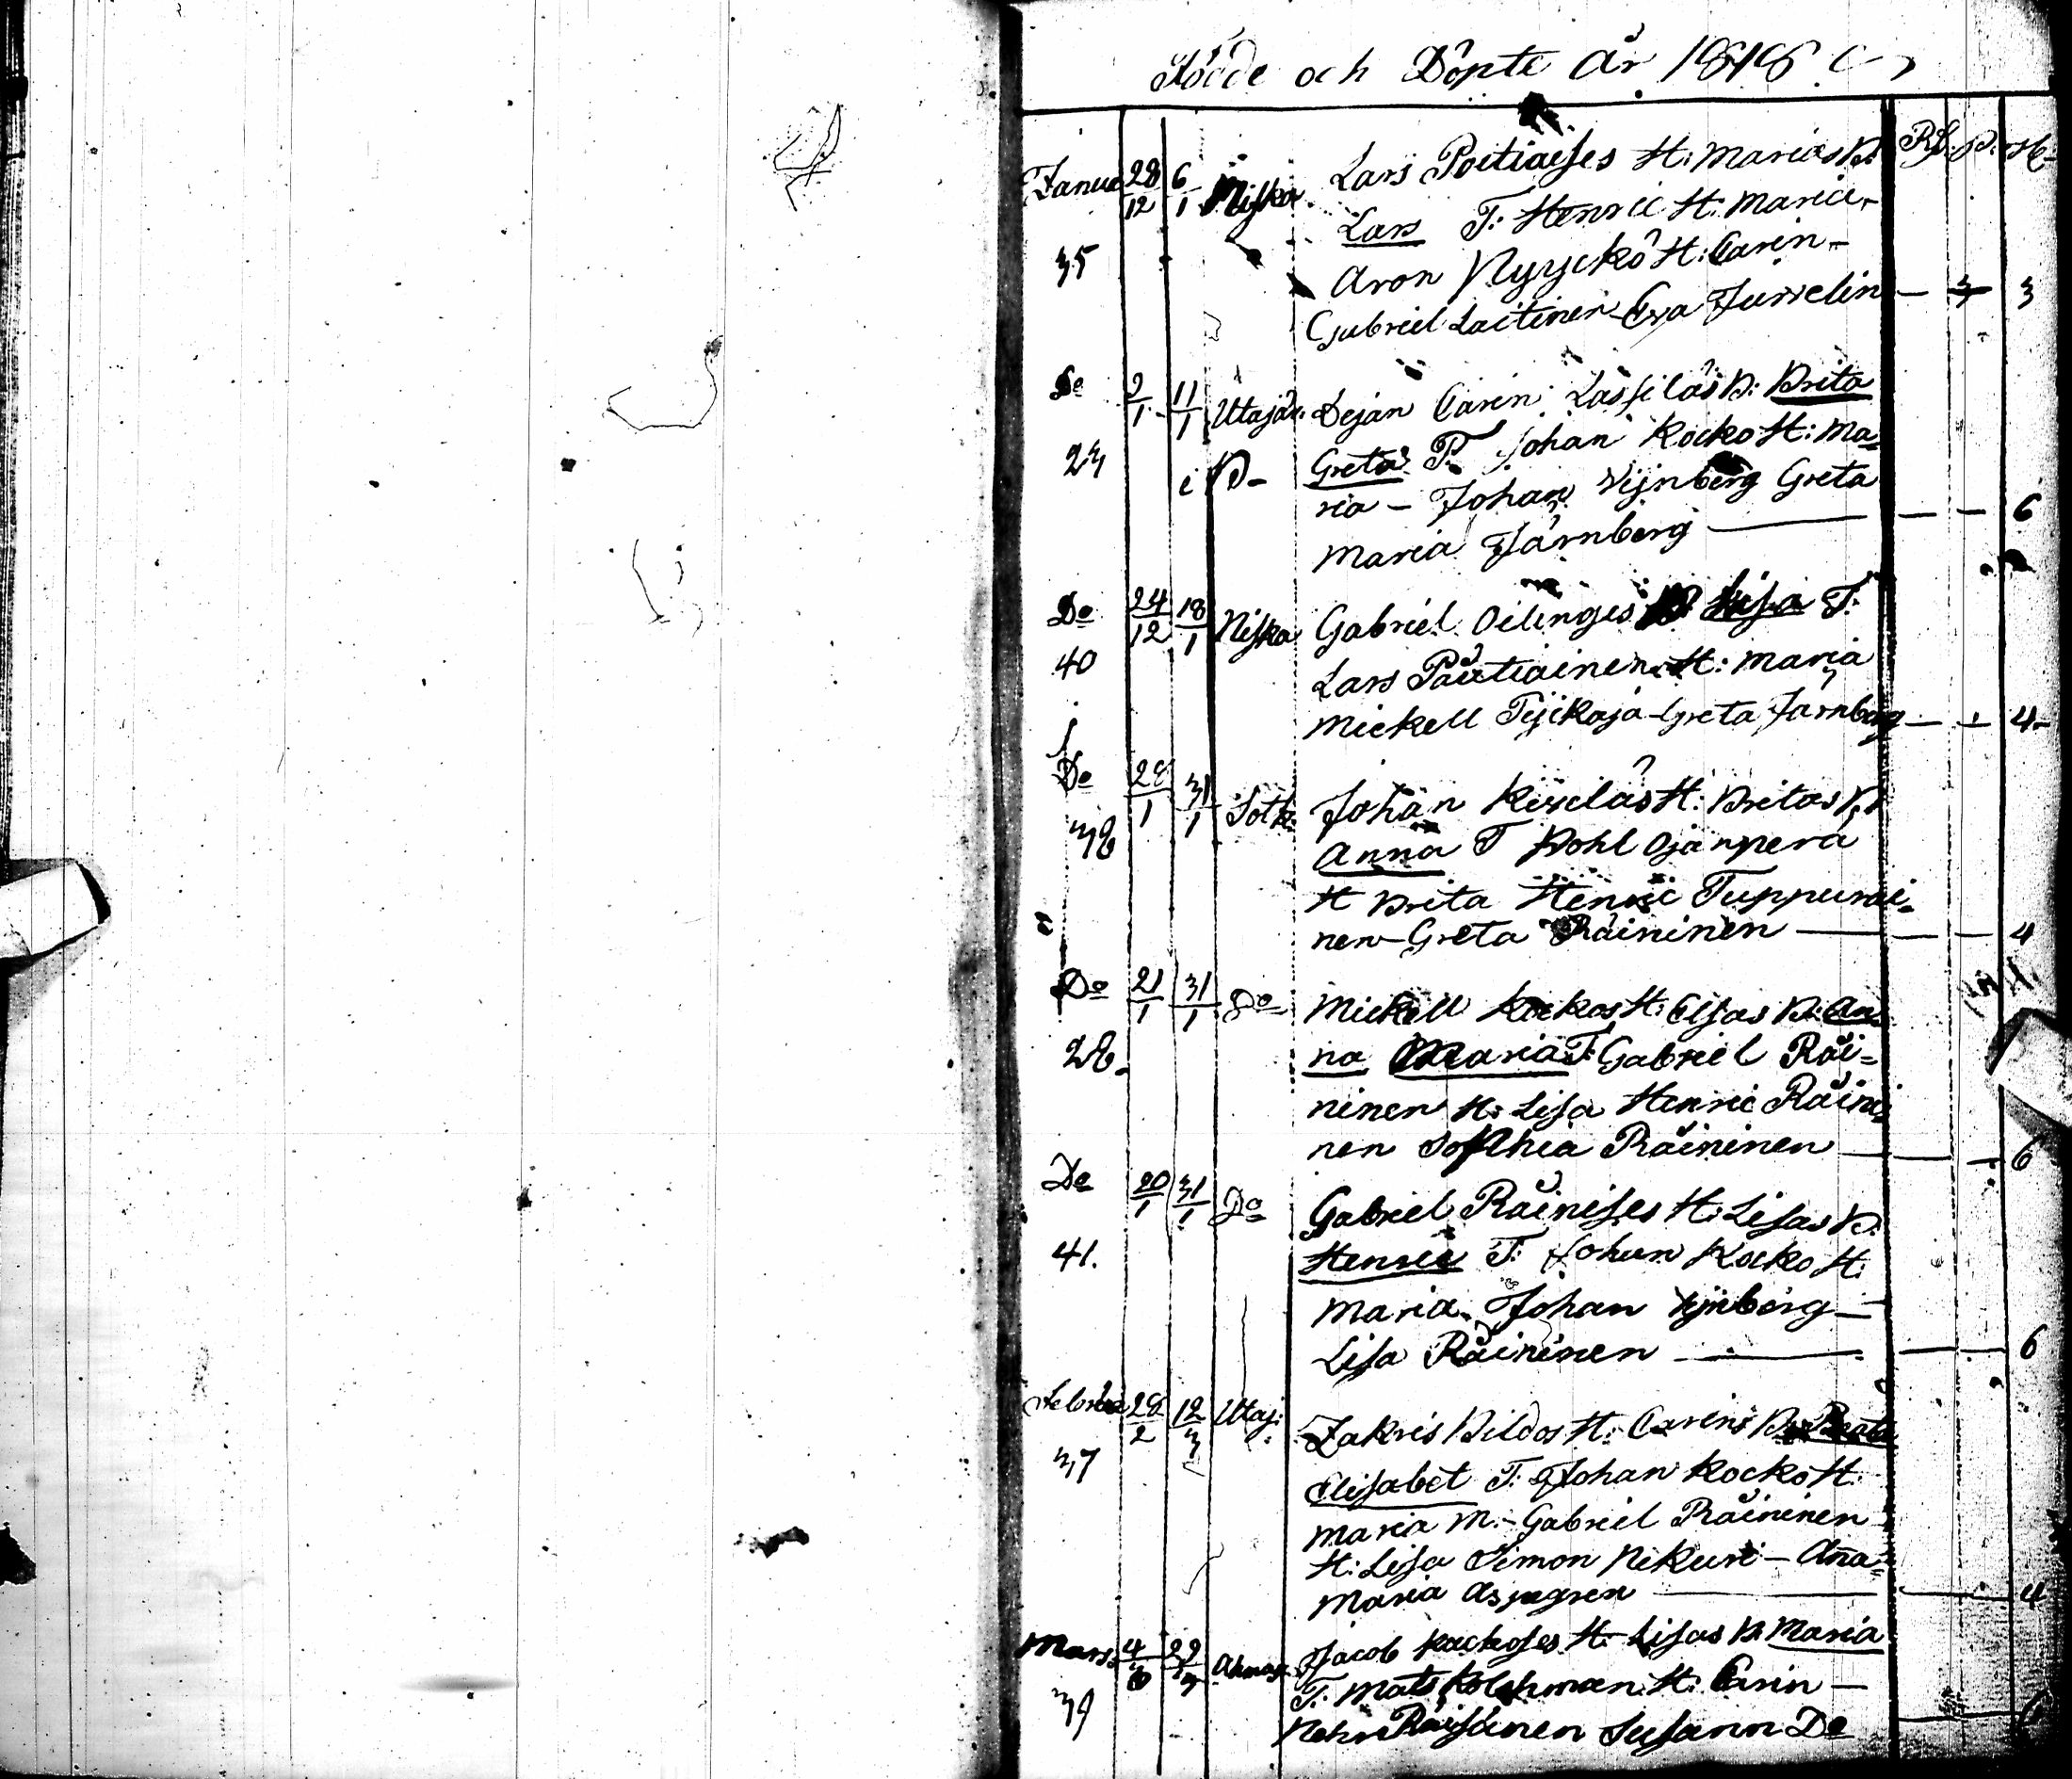 Födde och Döpte År 1818
Rb: P: H
Janua 28/12 6/1 Niska Lars Poitiaises H: Marias B:
Lars T: Henric H: Maria
35 Aron Nyyckö H: Carin
Gabriel Laitinen Eva Jurvelin — 3 3
Do 9/1 11/1 Utajär: Dejan Carin Lassilas B: Brita
23 i B Greta T. Johan Kocko H: Ma=
ria - Johan Greta
Maria Järnberg — — — 6
Do 24/12 18/1 Niska Gabriel Oilinges B: Lisa T:
40 Lars Pautiainen H: Maria
Mickell Greta Järnberg — — 4
Do 28/1 31/1 Sotk: Johan H: Britas B:
38 Anna T Pohl Ojanperä
H Brita Henric Tuppurai=
nen - Greta Räininen — — — 4
Do 21/1 31/1 Do Mickell Kockos H: Elsas B: An
28. na Maria T: Gabriel Räi=
ninen H: Lisa Henric Räini
nen Sophia Räininen — — 6
Do 20/1 31/1 Do Gabriel Räinises H: Lisas B:
41. Henric T: Johan Kocko H:
Maria Johan —
Lisa Räininen — — — 6
Februa 28/2 12/3 Utaj: Zakris H: Carins B: Beata
37 Elisabet T: Johan Kocko H:
Maria M. - Gabriel Räininen
H: Lisa Simon - Ana=
Maria Aspegren — — — 4
Mars: 22/3 Jacob H: Lisas B: Maria
39 T: Mats Kolehmen H: Carin —
Räisänen Susann Do